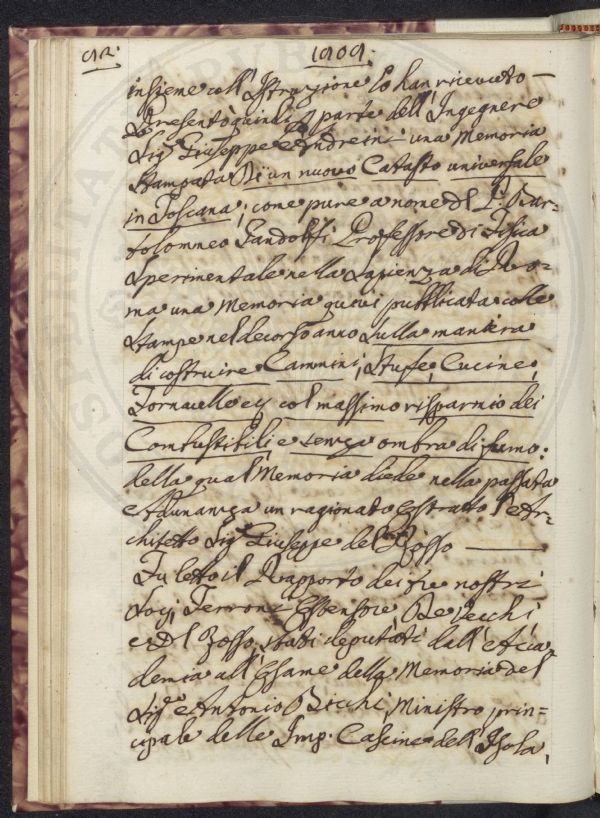 92. 1809.
insieme coll'Istruzione lo han ricevuto —
Presentò quindi p parte dell'Ingegnere
Sig.r Giuseppe Andreini una Memoria
Stampata Di un nuovo Catasto universale
in Toscana; come pure a nome del P. Bar=
tolommeo Gandolfi Professore di Fisica
Sperimentale nella Sapienza di Ro=
ma una Memoria quivi pubblicata colle
Stampe nel decorso anno sulla maniera
di costruire Cammini, Stufe, Cucine,
Fornacelle col massimo risparmio dei
Combustibili, e senza ombra di fumo:
della qual Memoria diede nella passata
Adunanza un ragionato Estratto l'Ar=
chitetto Sig.r Giuseppe del Rosso —
Fu letto il Rapporto dei tre nostri
Socj, Terroni Estensore, De Vecchj,
e Del Rosso, stati deputati dall'Acca=
demia all'Esame della Memoria del
Sig.e Antonio Bicchi, Ministro prin=
cipale delle Imp. Cascine dell'Isola,